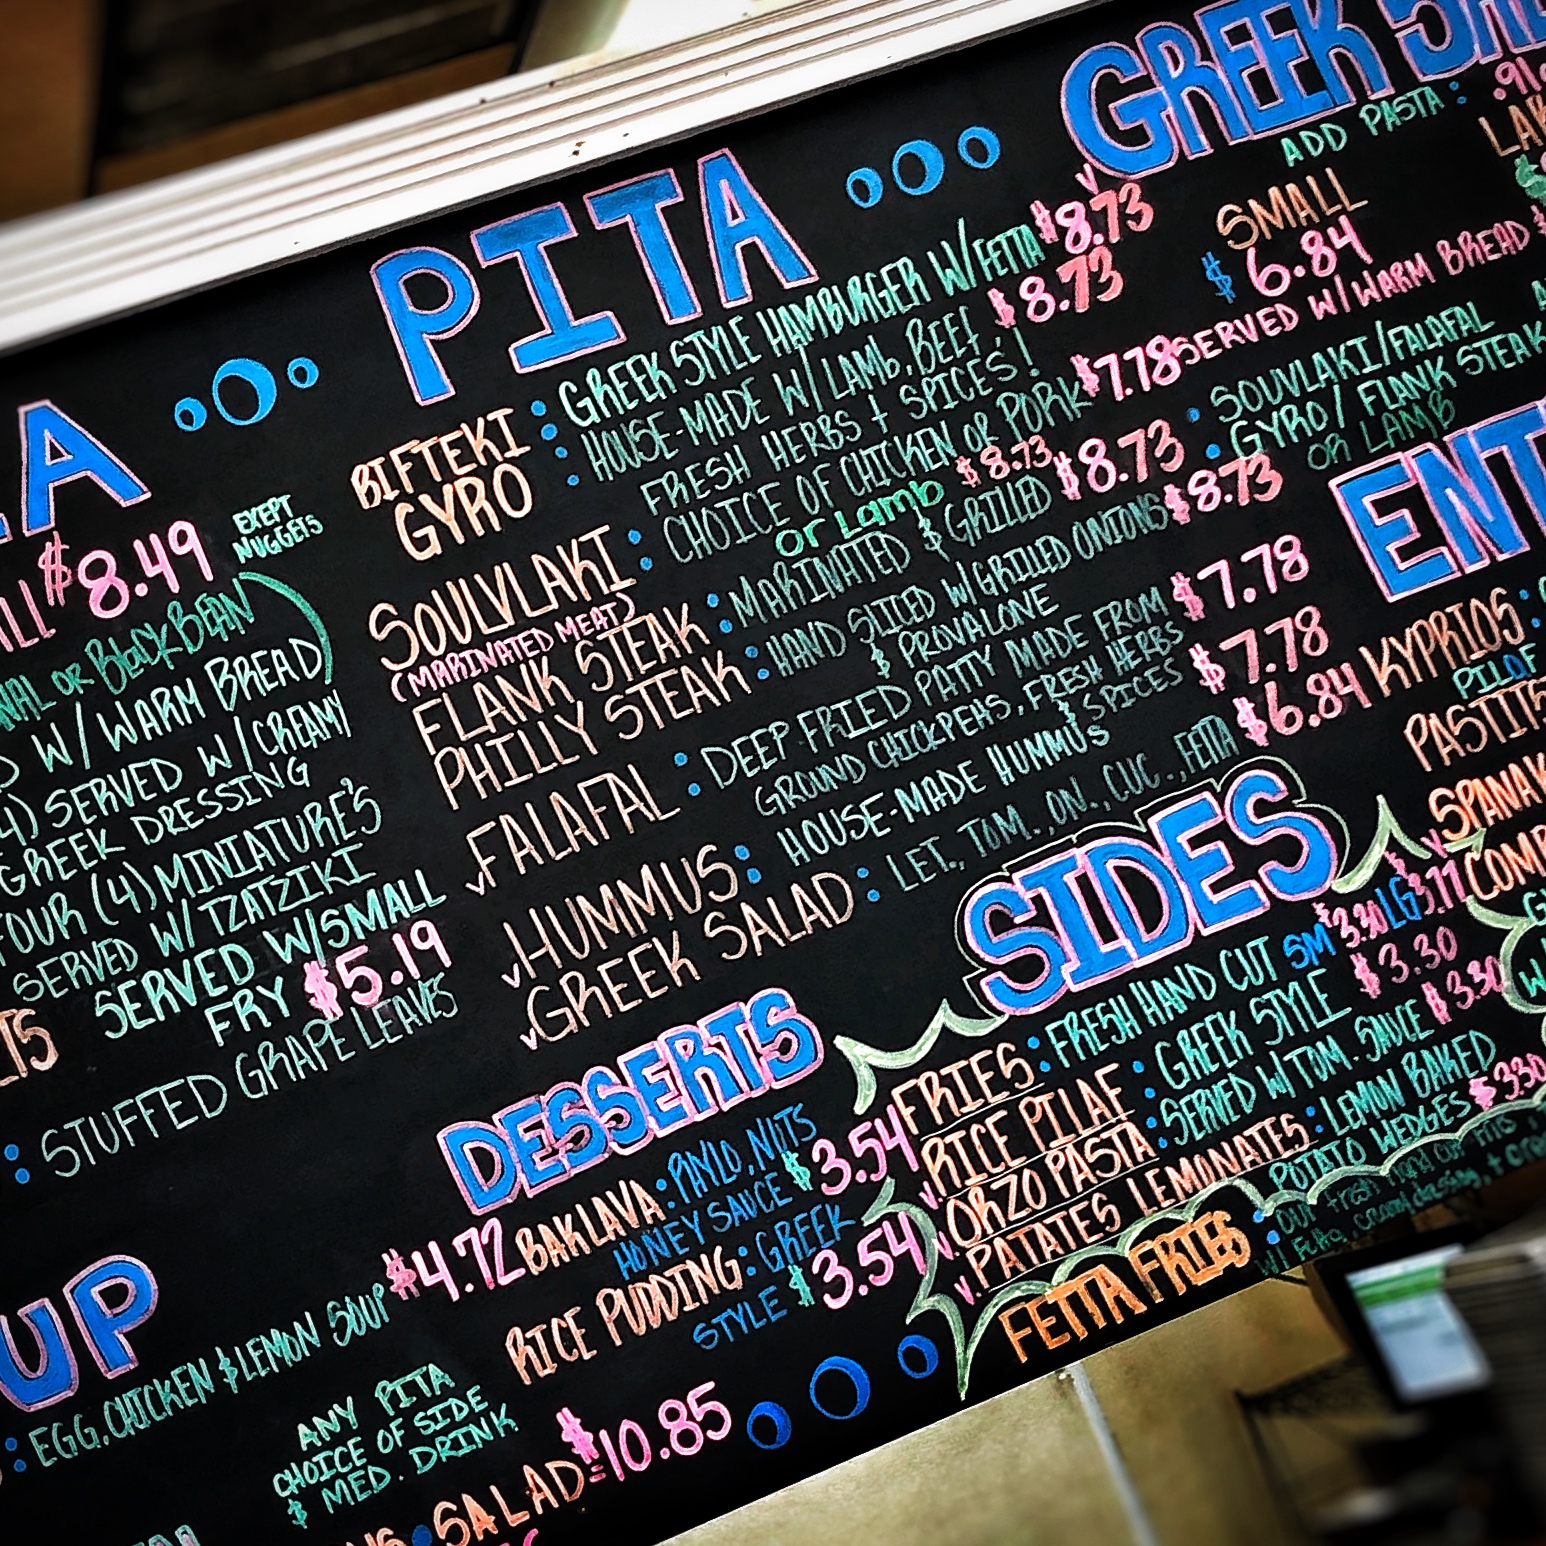 PITA
BIFTEKI : GREEK STYLE HAMBURGER W/FETTA $8.73
GYRO : HOUSE-MADE W/ LAMB, BEEF, $8.73
FRESH HERBS & SPICES!
SOUVLAKI : CHOICE OF CHICKEN OR PORK $7.78
(MARINATED MEAT) OR LAMB $8.73
FLANK STEAK : MARINATED & GRILLED $8.73
PHILLY STEAK : HAND SLICED W/GRILLED ONIONS $8.73
& PROVALONE
FALAFAL : DEEP FRIED PATTY MADE FROM $7.78
GROUND CHICKPEAS, FRESH HERBS
& SPICES
HUMMUS : HOUSE-MADE HUMMUS $7.78
GREEK SALAD : LET., TOM., ON., CUC., FETTA $6.84
GREEK
ADD PASTA :
SMALL
$6.84
SERVED W/WARM BREAD
SOUVLAKI/FALAFAL
GYRO/FLANK STEAK
OR LAMB
KYPRIOS :
A
$8.49 EXEPT
NUGGETS
OR BLACK BEAN
W/ WARM BREAD
4) SERVED W/ CREAMY
GREEK DRESSING
FOUR (4) MINIATURE'S
SERVED W/ TZATZIKI
SERVED W/SMALL
FRY $5.19
: STUFFED GRAPE LEAVES
UP
: EGG, CHICKEN & LEMON SOUP $4.72
ANY PITA
CHOICE OF SIDE
& MED. DRINK
SALAD = $10.85
DESSERTS
BAKLAVA : PAYLO, NUTS
HONEY SAUCE $3.54
RICE PUDDING : GREEK
STYLE $3.54
SIDES
FRIES : FRESH HAND CUT SM $3.30 LG 3.77
RICE PILAF : GREEK STYLE $3.30
ORZO PASTA : SERVED W/TOM. SAUCE $3.30
PATATES LEMONATES : LEMON BAKED
POTATO WEDGES $3.30
FETTA FRIES : OUR FRESH HAND CUT